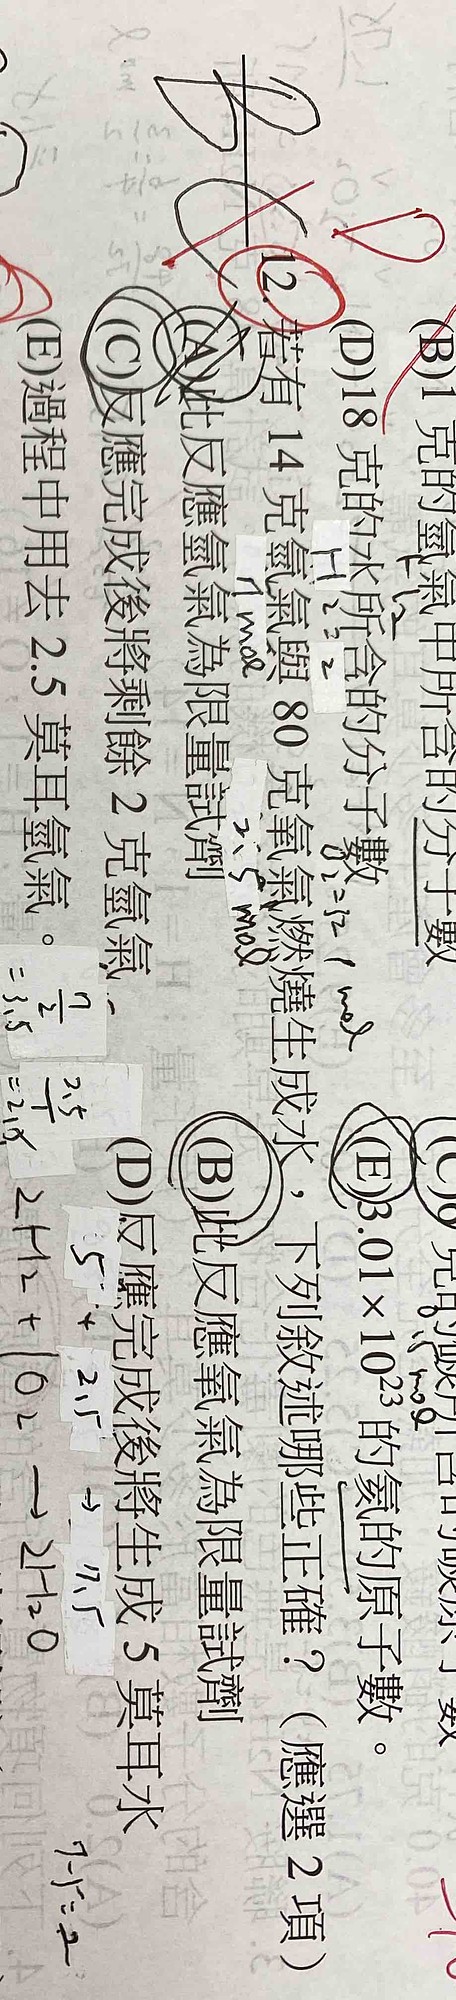 (B)1 克的氫氣中所含的分子數
H₂
(D)18 克的水所含的分子數
(E)3.01×10²³ 的氦的原子數。
H₂=2
O₂=32
1 mol
12. 若有 14 克氫氣與 80 克氧氣燃燒生成水，下列敘述哪些正確？（應選 2 項）
7 mol
2.5 mol
(A)此反應氫氣為限量試劑 (B)此反應氧氣為限量試劑
(C)反應完成後將剩餘 2 克氫氣 (D)反應完成後將生成 5 莫耳水
(E)過程中用去 2.5 莫耳氫氣。
7/2
=3.5
2.5/1
=2.5
5 + 2.5 → 7.5
2H₂ + 1O₂ → 2H₂O
7-5=2